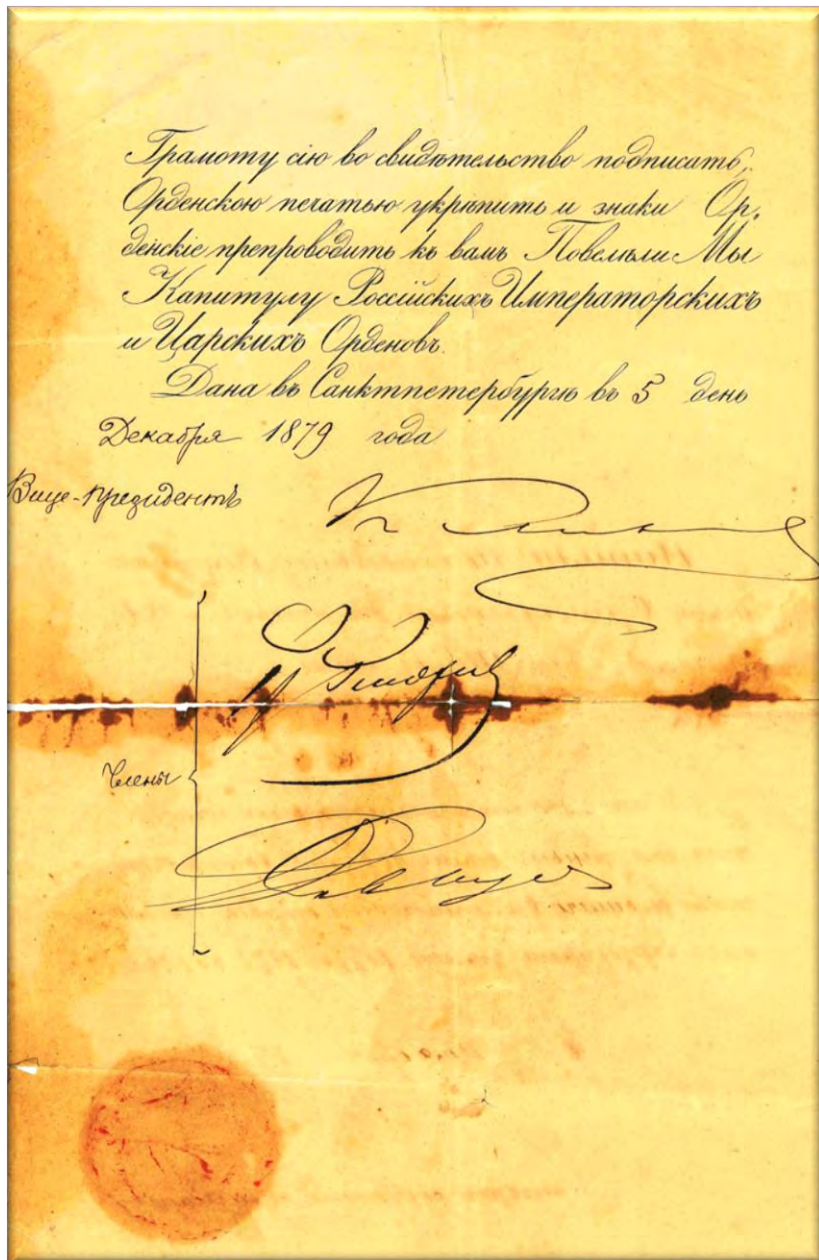 Грамоту сію во свидѣтельство подписать,
Орденскою печатью укрѣпить и знаки Ор-
денскіе препроводить къ вамъ Повелѣли Мы
Капитулу Россійскихъ Императорскихъ
и Царскихъ Орденовъ.
Дана въ Санктпетербургѣ въ 5 день
Декабря 1879 года
Вице-президентъ
Члены